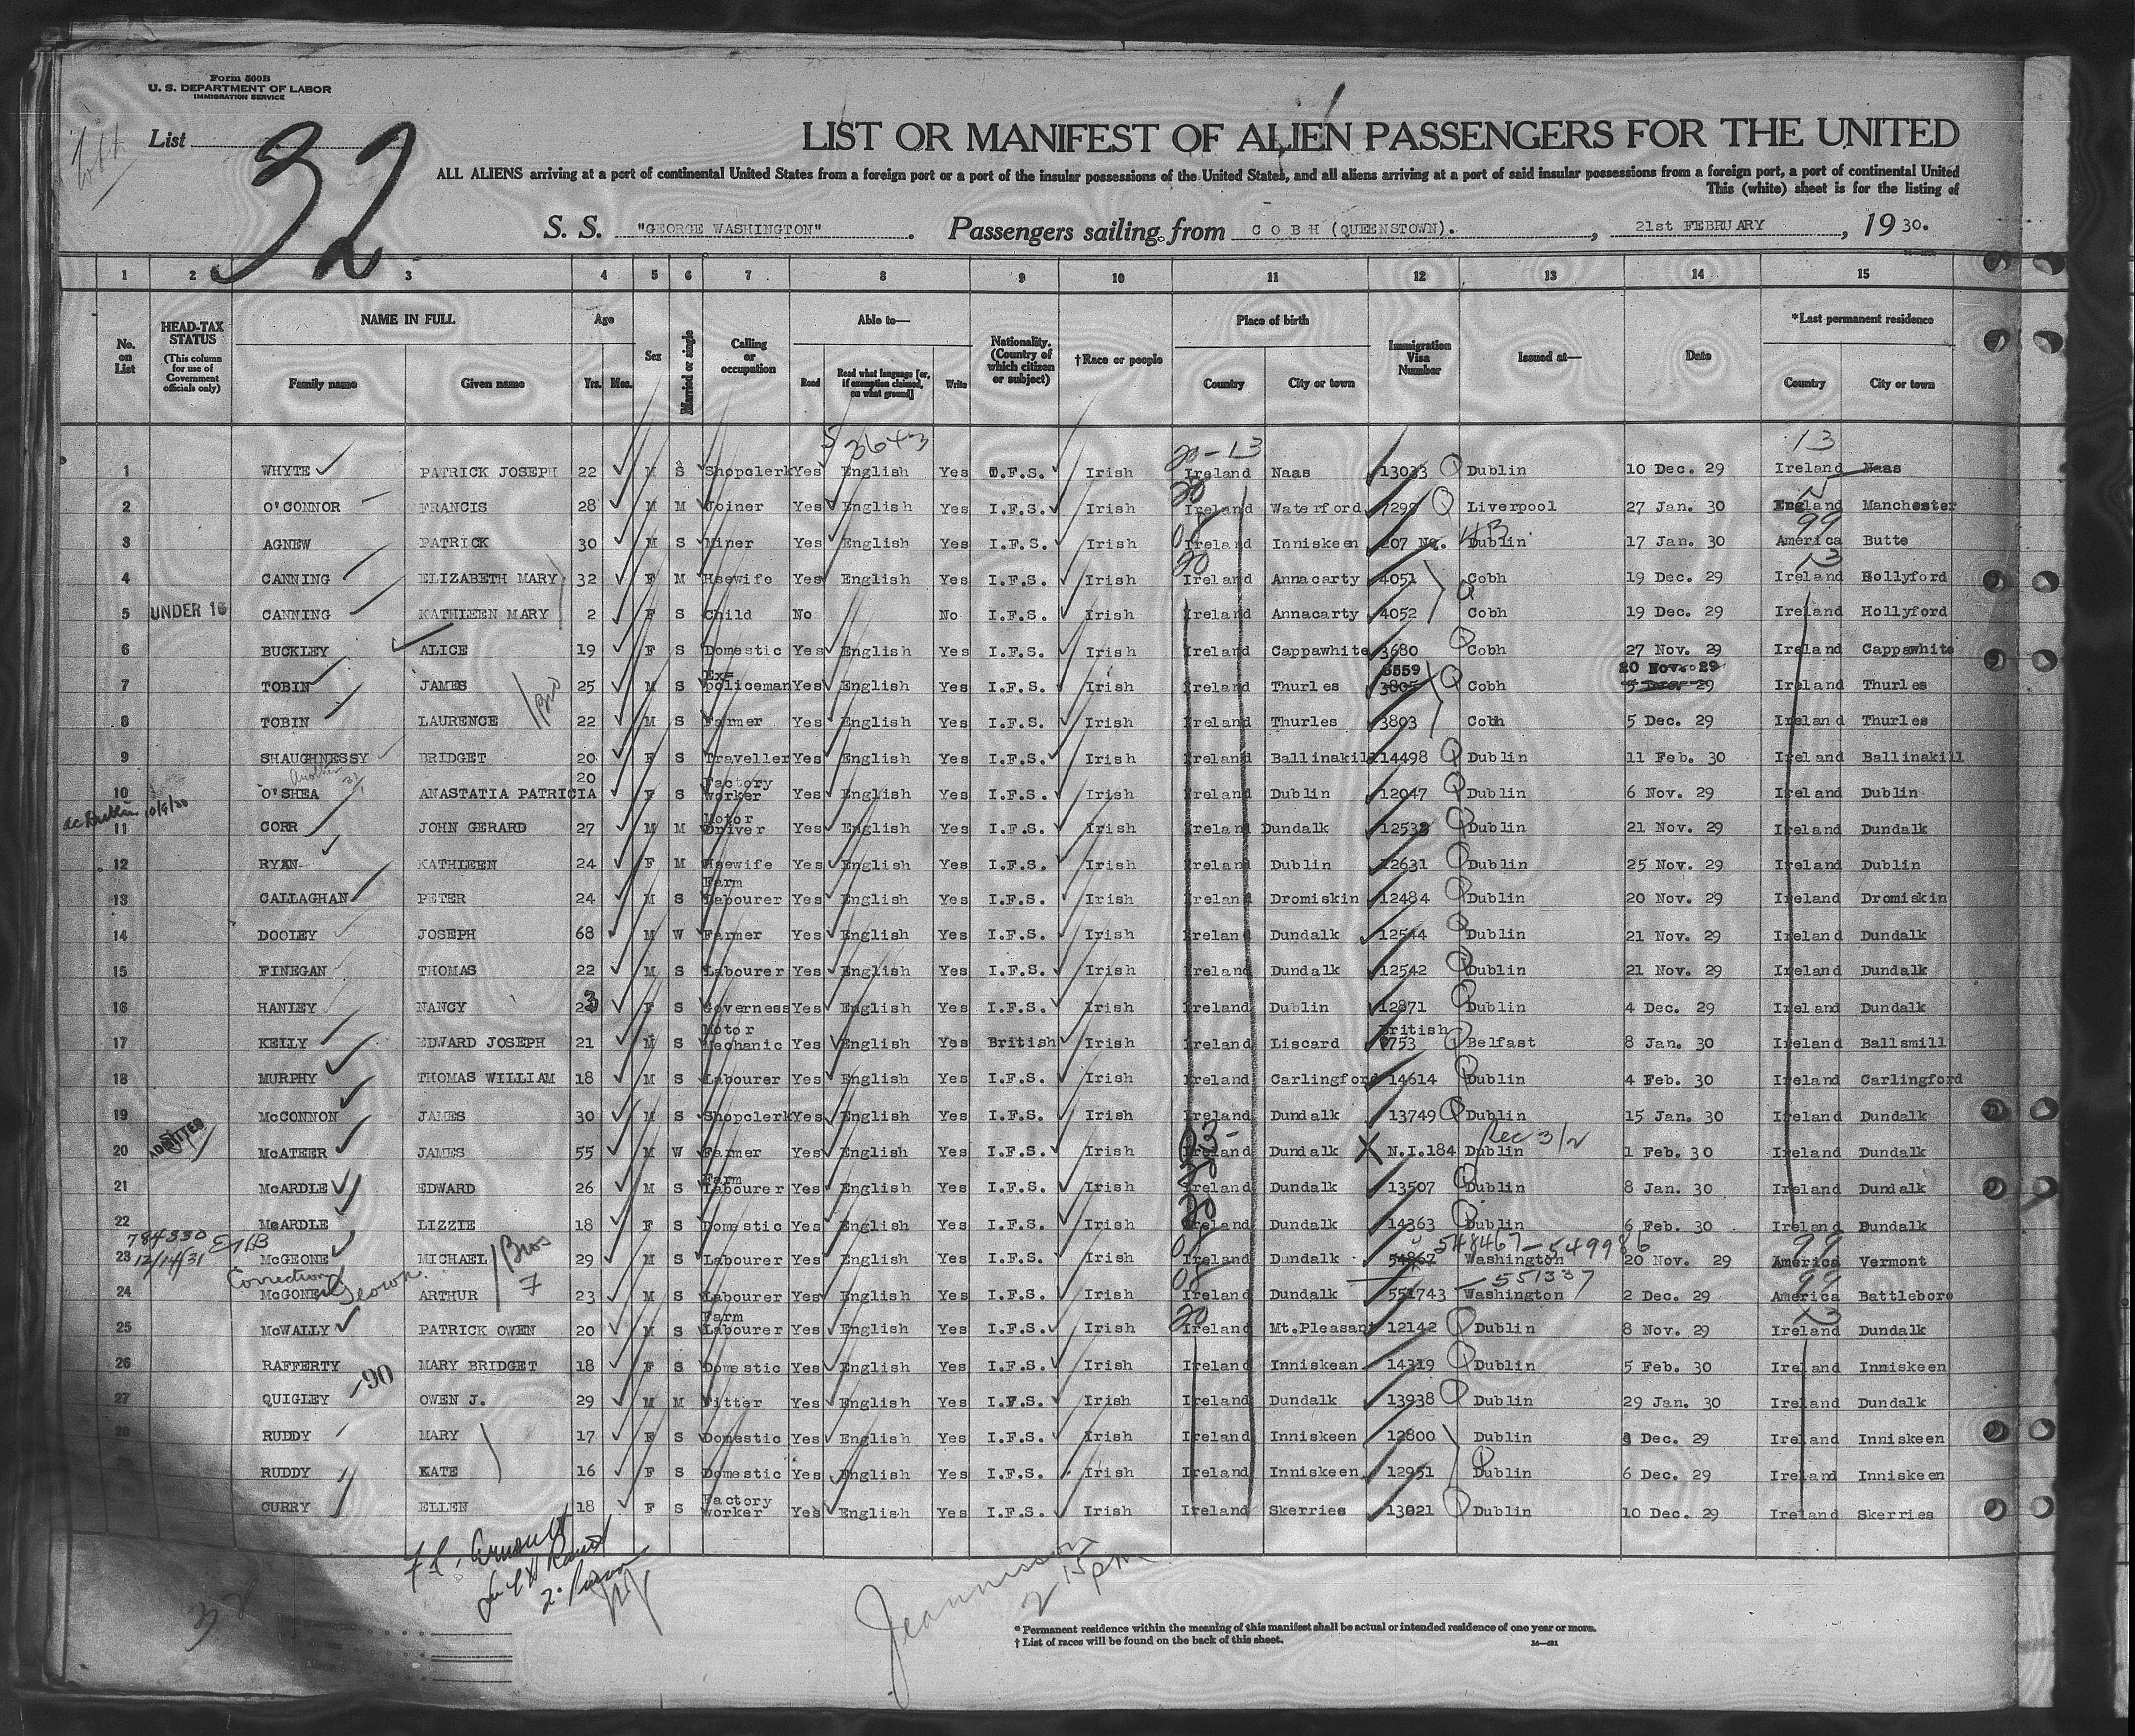 Form 500B
U. S. DEPARTMENT OF LABOR
IMMIGRATION SERVICE
List 32
LIST OR MANIFEST OF ALIEN PASSENGERS FOR THE UNITED
ALL ALIENS arriving at a port of continental United States from a foreign port or a port of the insular possessions of the United States, and all aliens arriving at a port of said insular possessions from a foreign port, a port of continental United
This (white) sheet is for the listing of
S. S. "GEORGE WASHINGTON" . Passengers sailing from COBH (QUEENSTOWN). , 21st FEBRUARY , 19 30.
1 2 3 4 5 6 7 8 9 10 11 12 13 14 15
No. on List HEAD-TAX STATUS (This column for use of Government officials only) NAME IN FULL Family name Given name Age Yrs. Mos. Sex Married or single Calling or occupation Able to— Read Read what language [or, if exemption claimed, on what ground] Write Nationality. (Country of which citizen or subject) †Race or people Place of birth Country City or town Immigration Visa Number Issued at— Date *Last permanent residence Country City or town
20-13 13
1 WHYTE PATRICK JOSEPH 22 M S Shopclerk Yes English Yes I.F.S. Irish Ireland Naas 13033 Dublin 10 Dec. 29 Ireland Naas
2 O'CONNOR FRANCIS 28 M M Joiner Yes English Yes I.F.S. Irish Ireland Waterford 7299 Liverpool 27 Jan. 30 England Manchester
3 AGNEW PATRICK 30 M S Miner Yes English Yes I.F.S. Irish Ireland Inniskeen 207 Nq. Dublin 17 Jan. 30 America Butte
4 CANNING ELIZABETH MARY 32 F M Hsewife Yes English Yes I.F.S. Irish Ireland Annacarty 4051 Cobh 19 Dec. 29 Ireland Hollyford
5 UNDER 16 CANNING KATHLEEN MARY 2 F S Child No No I.F.S. Irish Ireland Annacarty 4052 Cobh 19 Dec. 29 Ireland Hollyford
6 BUCKLEY ALICE 19 F S Domestic Yes English Yes I.F.S. Irish Ireland Cappawhite 3680 Cobh 27 Nov. 29 Ireland Cappawhite
7 TOBIN JAMES 25 M S Ex= policeman Yes English Yes I.F.S. Irish Ireland Thurles 3559 3805 Cobh 20 Nov. 29 5 Dec. 29 Ireland Thurles
8 TOBIN LAURENCE 22 M S Farmer Yes English Yes I.F.S. Irish Ireland Thurles 3803 Cobh 5 Dec. 29 Ireland Thurles
9 SHAUGHNESSY BRIDGET 20 F S Traveller Yes English Yes I.F.S. Irish Ireland Ballinakill 14498 Dublin 11 Feb. 30 Ireland Ballinakill
10 O'SHEA ANASTATIA PATRICIA 20 F S Factory worker Yes English Yes I.F.S. Irish Ireland Dublin 12047 Dublin 6 Nov. 29 Ireland Dublin
11 CORR JOHN GERARD 27 M M Motor Driver Yes English Yes I.F.S. Irish Ireland Dundalk 12532 Dublin 21 Nov. 29 Ireland Dundalk
12 RYAN KATHLEEN 24 F M Hsewife Yes English Yes I.F.S. Irish Ireland Dublin 12631 Dublin 25 Nov. 29 Ireland Dublin
13 CALLAGHAN PETER 24 M S Farm Labourer Yes English Yes I.F.S. Irish Ireland Dromiskin 12484 Dublin 20 Nov. 29 Ireland Dromiskin
14 DOOLEY JOSEPH 68 M W Farmer Yes English Yes I.F.S. Irish Ireland Dundalk 12544 Dublin 21 Nov. 29 Ireland Dundalk
15 FINEGAN THOMAS 22 M S Labourer Yes English Yes I.F.S. Irish Ireland Dundalk 12542 Dublin 21 Nov. 29 Ireland Dundalk
16 HANLEY NANCY 23 F S Governess Yes English Yes I.F.S. Irish Ireland Dublin 12871 Dublin 4 Dec. 29 Ireland Dundalk
17 KEILY EDWARD JOSEPH 21 M S Motor Mechanic Yes English Yes British Irish Ireland Liscard British 9753 Belfast 8 Jan. 30 Ireland Ballsmill
18 MURPHY THOMAS WILLIAM 18 M S Labourer Yes English Yes I.F.S. Irish Ireland Carlingford 14614 Dublin 4 Feb. 30 Ireland Carlingford
19 McCONNON JAMES 30 M S Shopclerk Yes English Yes I.F.S. Irish Ireland Dundalk 13749 Dublin 15 Jan. 30 Ireland Dundalk
20 ADMITTED McATEER JAMES 55 M W Farmer Yes English Yes I.F.S. Irish Ireland Dundalk N.I.184 Dublin Rec 3/2 1 Feb. 30 Ireland Dundalk
21 McARDLE EDWARD 26 M S Farm Labourer Yes English Yes I.F.S. Irish Ireland Dundalk 13507 Dublin 8 Jan. 30 Ireland Dundalk
22 McARDLE LIZZIE 18 F S Domestic Yes English Yes I.F.S. Irish Ireland Dundalk 14363 Dublin 6 Feb. 30 Ireland Dundalk
784330 12/14/31
23 McGEONE MICHAEL Bros 29 M S Labourer Yes English Yes I.F.S. Irish Ireland Dundalk 54867 548467-549986 Washington 20 Nov. 29 America Vermont
Correction
24 McGONE Geown ARTHUR 7 23 M S Labourer Yes English Yes I.F.S. Irish Ireland Dundalk 551743 -551337 Washington 2 Dec. 29 America Battleboro
25 McWALLY PATRICK OWEN 20 M S Farm Labourer Yes English Yes I.F.S. Irish Ireland Mt.Pleasant 12142 Dublin 8 Nov. 29 Ireland Dundalk
26 RAFFERTY MARY BRIDGET 18 F S Domestic Yes English Yes I.F.S. Irish Ireland Inniskean 14319 Dublin 5 Feb. 30 Ireland Inniskeen
27 QUIGLEY -90 OWEN J. 29 M M Fitter Yes English Yes I.F.S. Irish Ireland Dundalk 13938 Dublin 29 Jan. 30 Ireland Dundalk
28 RUDDY MARY 17 F S Domestic Yes English Yes I.F.S. Irish Ireland Inniskeen 12800 Dublin Dec. 29 Ireland Inniskeen
RUDDY KATE 16 F S Domestic Yes English Yes I.F.S. Irish Ireland Inniskeen 12951 Dublin 6 Dec. 29 Ireland Inniskeen
CURRY ELLEN 18 F S Factory worker Yes English Yes I.F.S. Irish Ireland Skerries 13021 Dublin 10 Dec. 29 Ireland Skerries
2 15 pm
32
* Permanent residence within the meaning of this manifest shall be actual or intended residence of one year or more.
† List of races will be found on the back of this sheet.